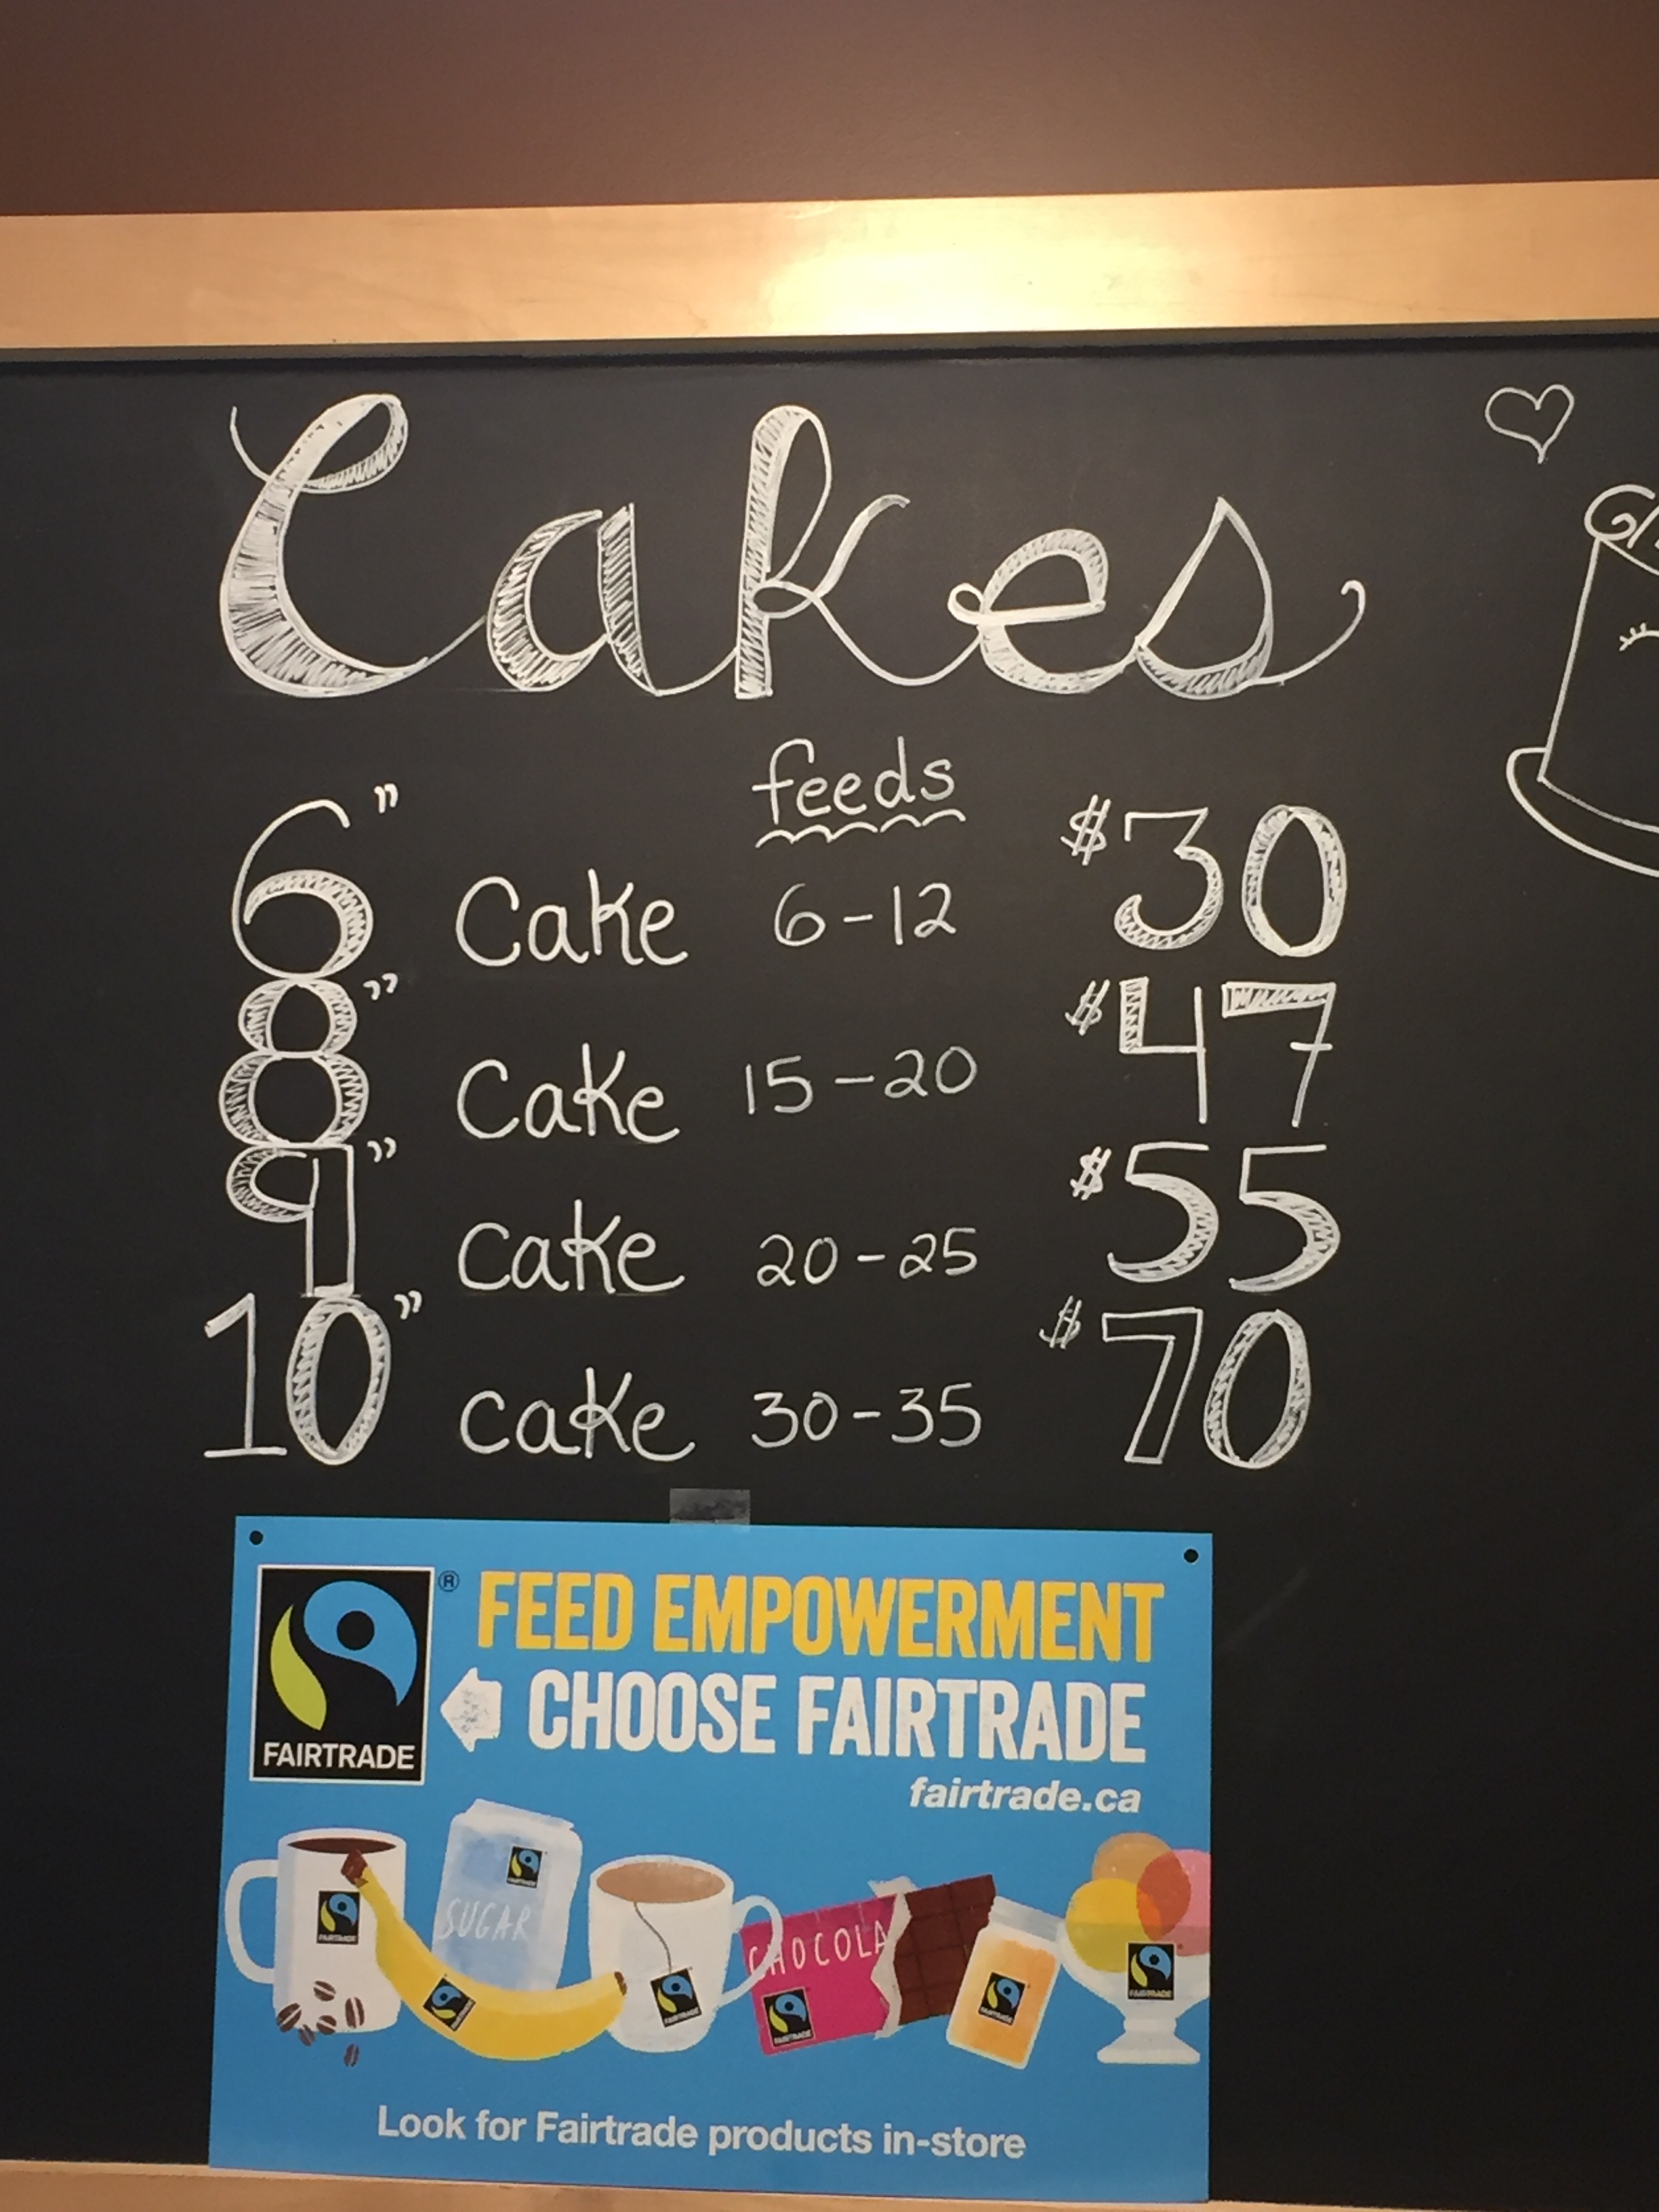 Cakes
feeds
6" Cake 6-12 $30
8" Cake 15-20 $47
9" Cake 20-25 $55
10" Cake 30-35 $70
FAIRTRADE
®
FEED EMPOWERMENT
CHOOSE FAIRTRADE
fairtrade.ca
SUGAR
CHOCOLA
FAIRTRADE
FAIRTRADE
FAIRTRADE
FAIRTRADE
FAIRTRADE
FAIRTRADE
FAIRTRADE
Look for Fairtrade products in-store